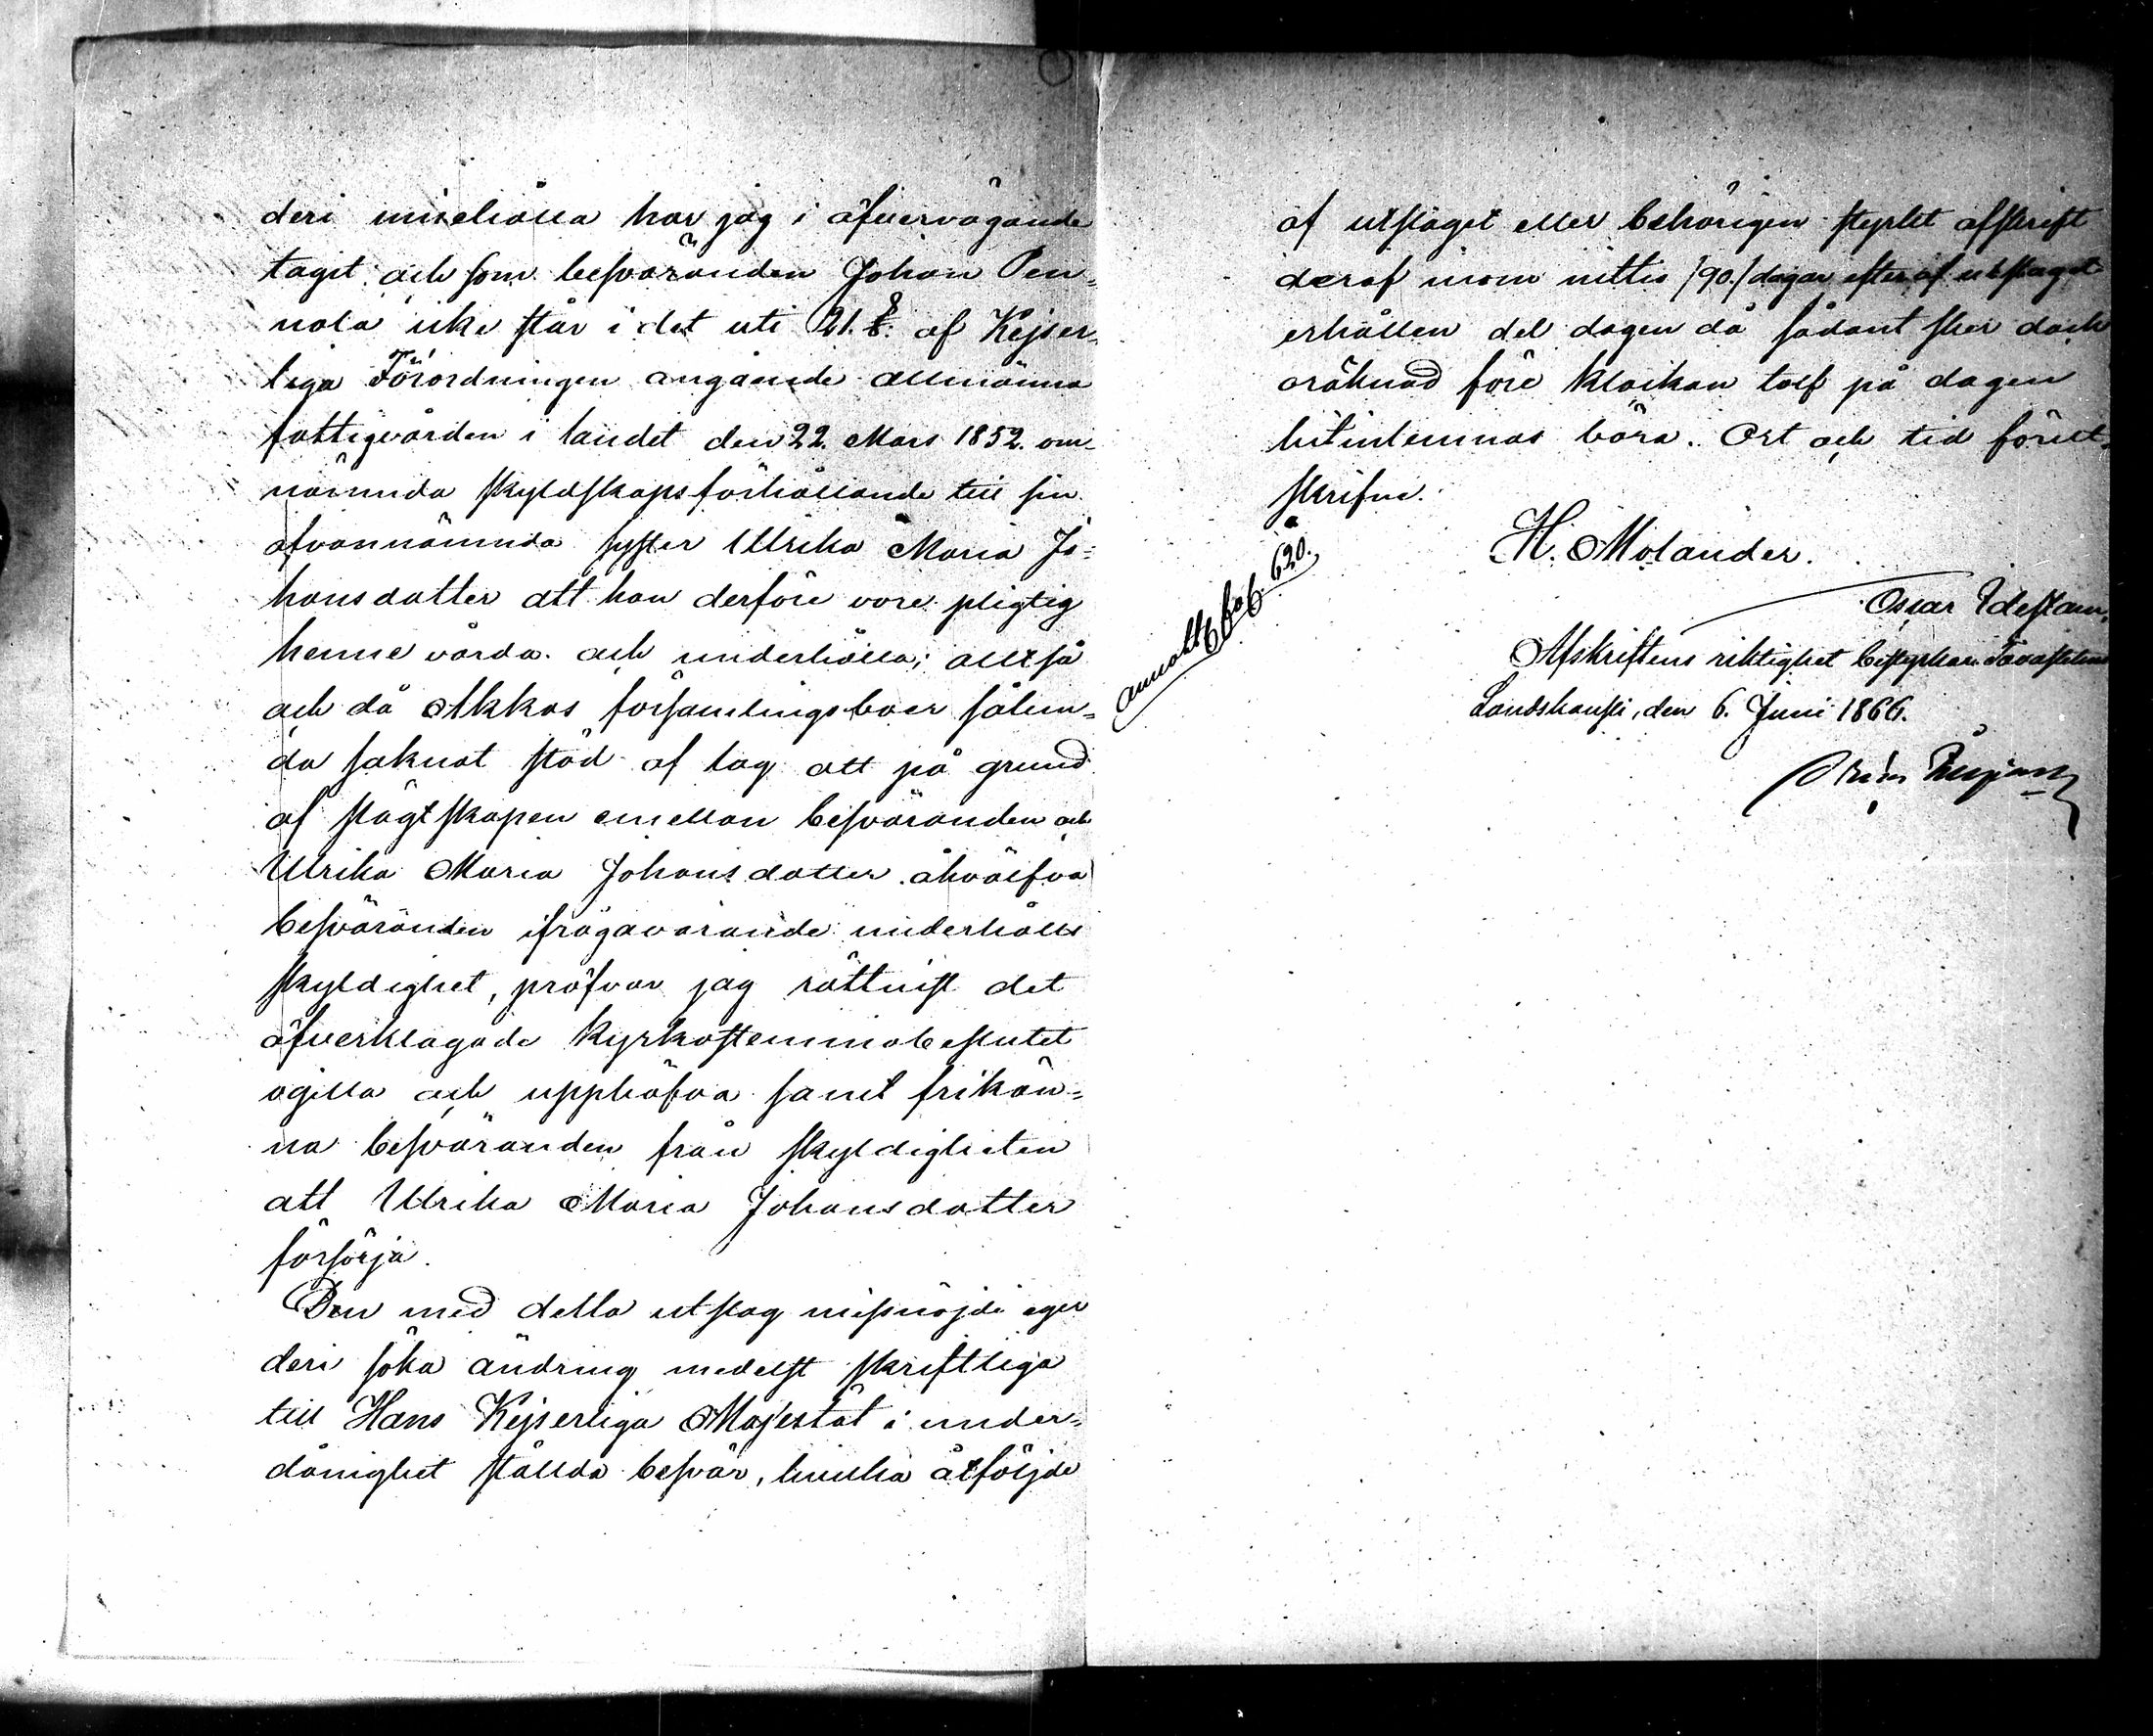 deri innehålla har jag i öfvervägande
tagit; och som besväranden Johan Pen-
nola icke står i det uti 21. §. af Kejser-
liga Förordningen angående allmänna
fattigvården i landet den 22. Mars 1852. om-
nämnda skyldskapsförhållande till sin
ofvannämnda syster Ulrika Maria Jo-
hansdotter att han derföre vore pligtig
henne vårda och underhålla; alltså
och då Akkas församlingsboer sålun-
da saknat stöd af lag att på grund
af slägtskapen emellan besväranden och
Ulrika Maria Johansdotter åhvälfva
besväranden ifrågavarande underhålls
skyldighet, pröfvar jag rättvist det
öfverklagade kyrkostemmobeslutet
ogilla och upphäfva samt frikän-
na besväranden från skyldigheten
att Ulrika Maria Johansdotter
försörja.
Den med detta utslag missnöjde eger
deri söka ändring medelst skriftliga
till Hans Kejserliga Majestät i under-
dånighet ställda besvär, hvilka åtföljde
af utslaget eller behörigen styrkt afskrift
deraf inom nittio /90./ dagar efter af utslaget
erhållen del dagen då sådant sker dock
oräknad före klockan tolf på dagen
hitinlemnas böra. Ort och tid förut-
skrifne.
H. Molander.
Oscar Idestam.
Afskriftens riktighet bestyrker: Tavastehus
Landskansli, den 6. Juni 1866.
620.